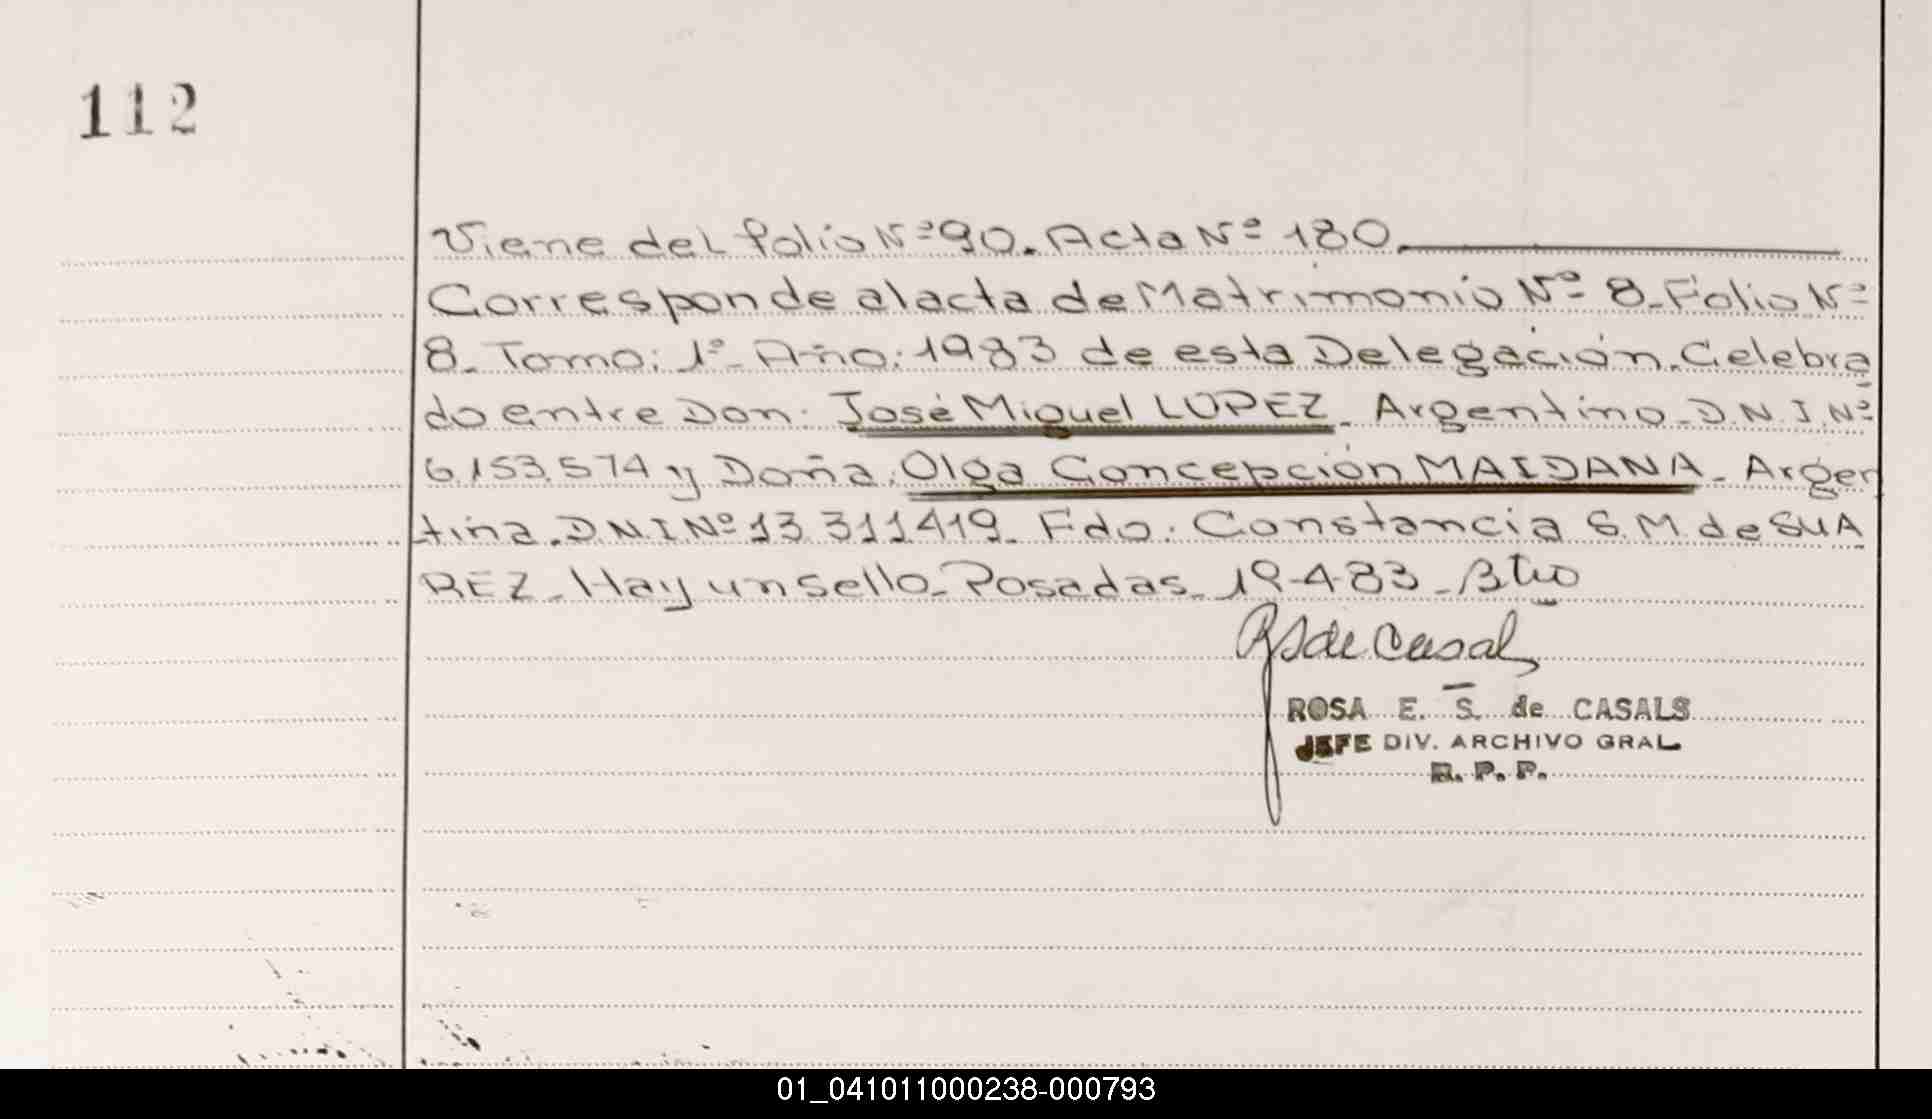 112
Viene del folio Nº 90. Acta Nº 180.
Corresponde al acta de Matrimonio Nº 8. Folio Nº
8. Tomo: 1º. Año: 1983 de esta Delegación. Celebra
do entre Don: José Miguel LOPEZ. Argentino. D.N.I. Nº
6.153.574 y Doña: Olga Concepción MAIDANA. Argen
tina. D.N.I Nº 13.311419. Fdo: Constancia S.M. de SUA
REZ. Hay un sello. Posadas. 19-4-83.
ROSA E. S. de CASALS
JEFE DIV. ARCHIVO GRAL.
R. P. P.
01_041011000238-000793